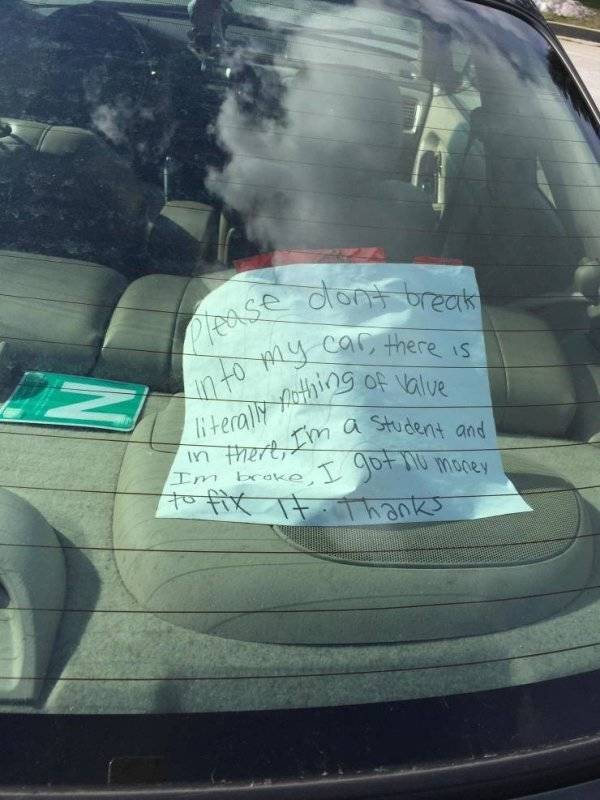 please dont break
into my car, there is
literally nothing of value
in there, Im a student and
Im broke, I got no money
to fix it. Thanks
N